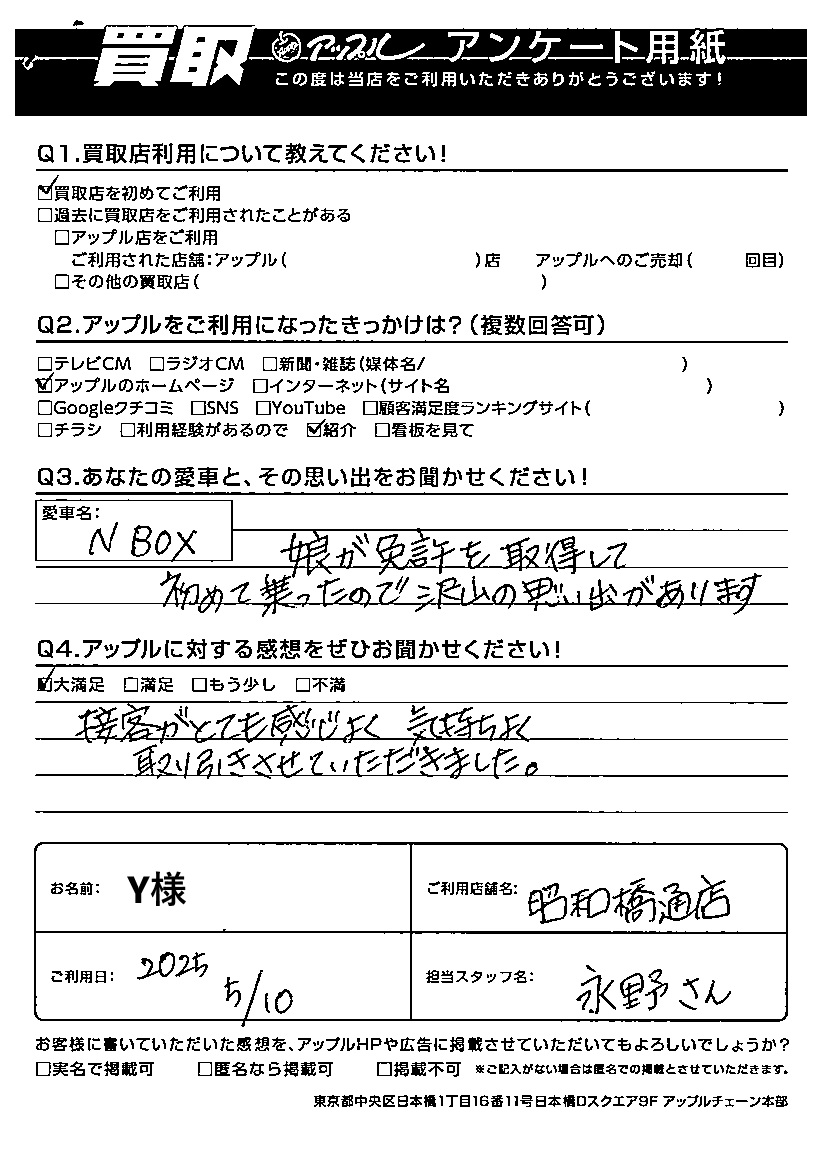 買取 アップル アンケート用紙
この度は当店をご利用いただきありがとうございます!
Q1.買取店利用について教えてください!
☑買取店を初めてご利用
□過去に買取店をご利用されたことがある
□アップル店をご利用
ご利用された店舗:アップル( )店 アップルへのご売却( 回目)
□その他の買取店( )
Q2.アップルをご利用になったきっかけは?(複数回答可)
□テレビCM □ラジオCM □新聞・雑誌(媒体名/ )
☑アップルのホームページ □インターネット(サイト名 )
□Googleクチコミ □SNS □YouTube □顧客満足度ランキングサイト( )
□チラシ □利用経験があるので ☑紹介 □看板を見て
Q3.あなたの愛車と、その思い出をお聞かせください!
愛車名:
N BOX
娘が免許を取得して
初めて乗ったので沢山の思い出があります
Q4.アップルに対する感想をぜひお聞かせください!
☑大満足 □満足 □もう少し □不満
接客がとても感じよく 気持ちよく
取り引きさせていただきました。
お名前: Y様
ご利用店舗名: 昭和橋通店
ご利用日: 2025 5/10
担当スタッフ名: 永野さん
お客様に書いていただいた感想を、アップルHPや広告に掲載させていただいてもよろしいでしょうか?
□実名で掲載可 □匿名なら掲載可 □掲載不可 ※ご記入がない場合は匿名での掲載とさせていただきます。
東京都中央区日本橋1丁目16番11号日本橋Dスクエア9F アップルチェーン本部